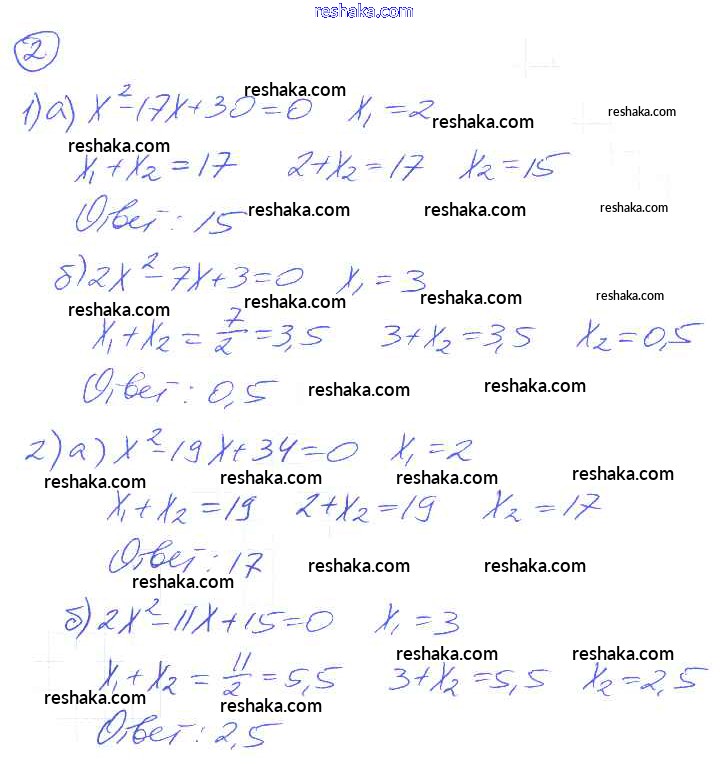 reshaka.com
2
reshaka.com
1) а) x²-17x+30=0 x₁=2
reshaka.com reshaka.com
reshaka.com
x₁+x₂=17 2+x₂=17 x₂=15
Ответ: 15 reshaka.com reshaka.com reshaka.com
б) 2x²-7x+3=0 x₁=3
reshaka.com reshaka.com reshaka.com reshaka.com
x₁+x₂=7/2=3,5 3+x₂=3,5 x₂=0,5
Ответ: 0,5 reshaka.com reshaka.com
2) а) x²-19x+34=0 x₁=2
reshaka.com reshaka.com reshaka.com reshaka.com
x₁+x₂=19 2+x₂=19 x₂=17
Ответ: 17 reshaka.com reshaka.com
reshaka.com
б) 2x²-11x+15=0 x₁=3
reshaka.com reshaka.com
x₁+x₂=11/2=5,5 3+x₂=5,5 x₂=2,5
reshaka.com reshaka.com
Ответ: 2,5